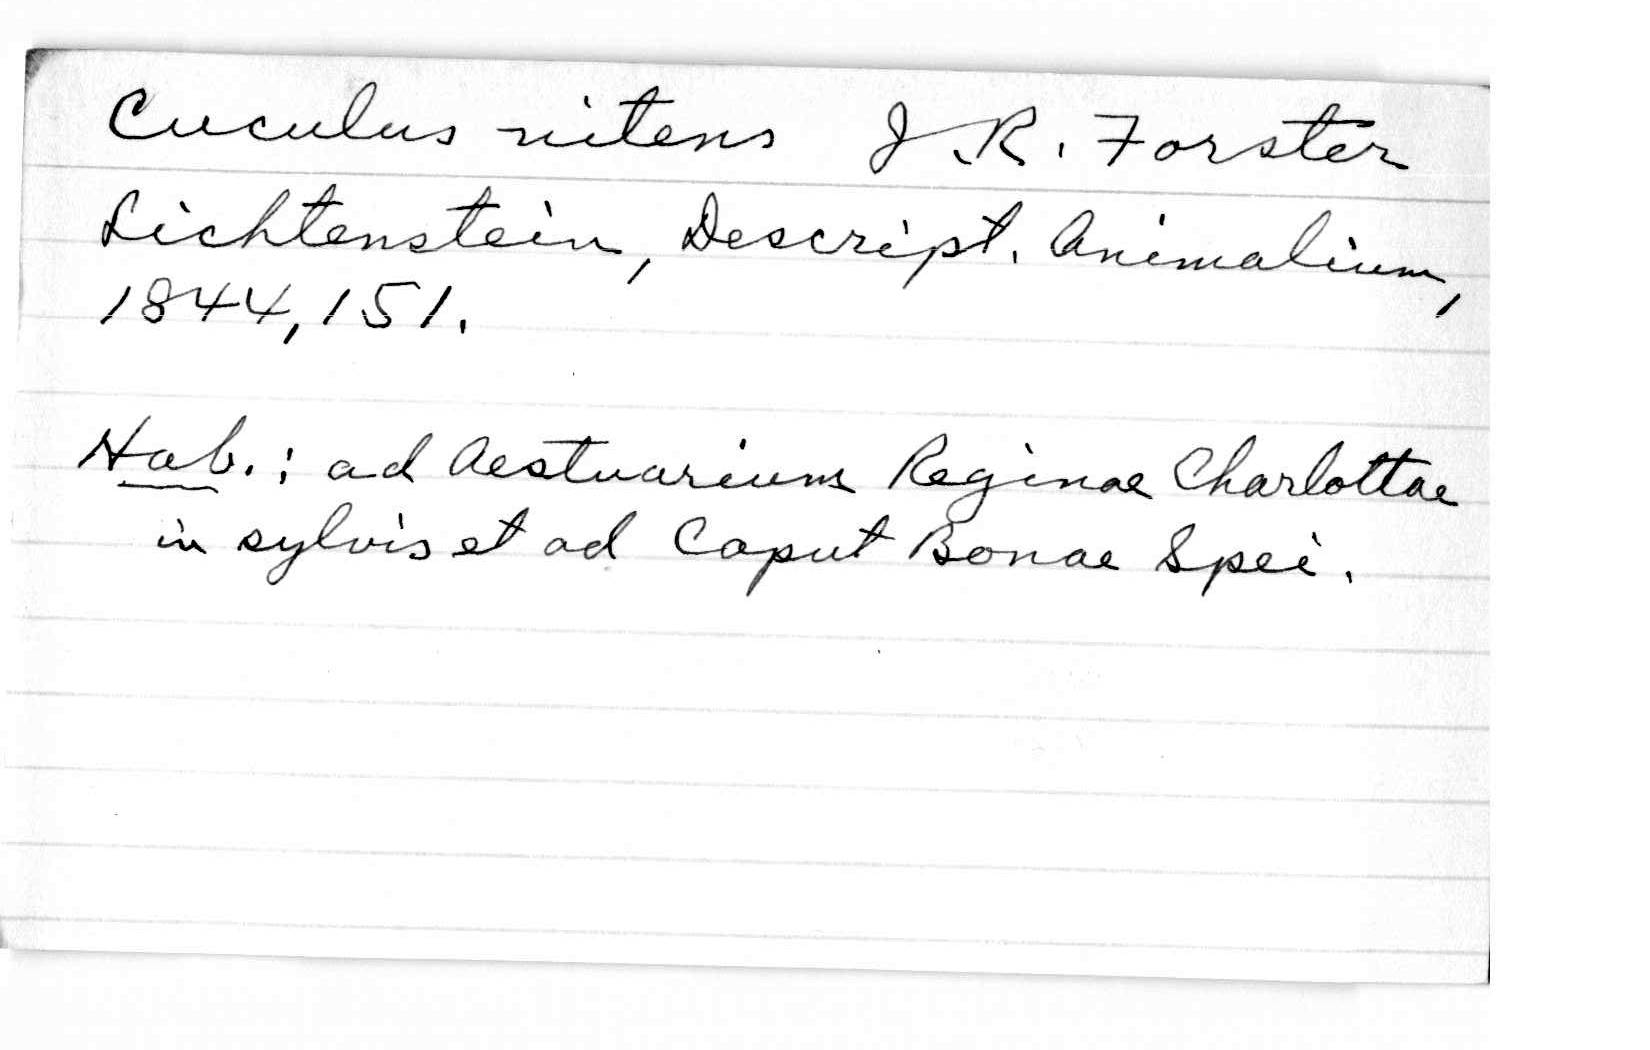 Cuculus nitens J.R. Forster
Lichtenstein, Descript. Animalium,
1844, 151.
Hab.: ad Aestuarium Reginae Charlottae
in sylvis et ad Caput Bonae Spei.